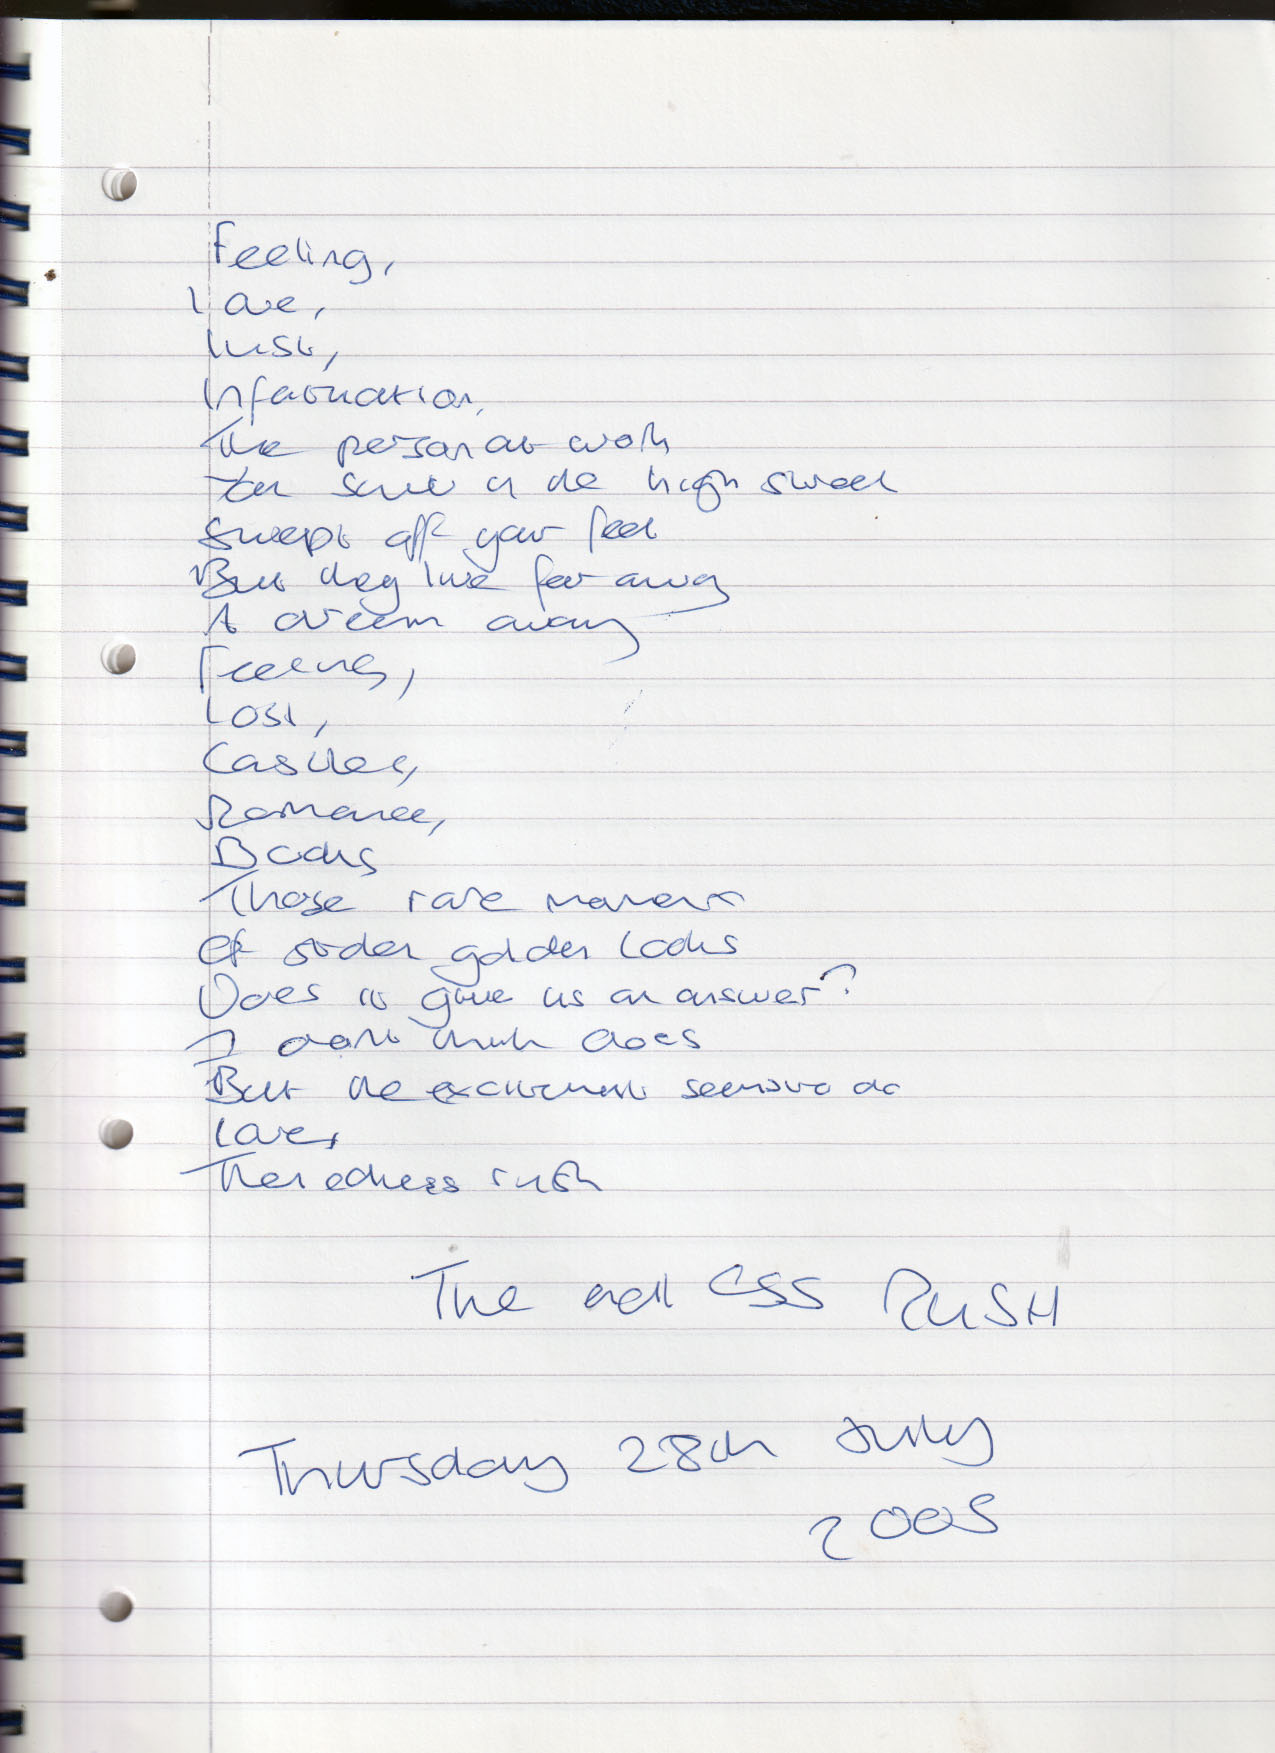 Feeling,
Love,
lust,
Infatuation,
The person at work
You see in the high street
Swept off your feet
But they live far away
A dream away
Feelings,
Lost,
Castles,
Romance,
Books
Those rare moments
Of golden locks
Does it give us an answer?
I dont think does
But the excitement seems to do
Love,
The endless rush
The endless RUSH
Thursday 28th July
2005